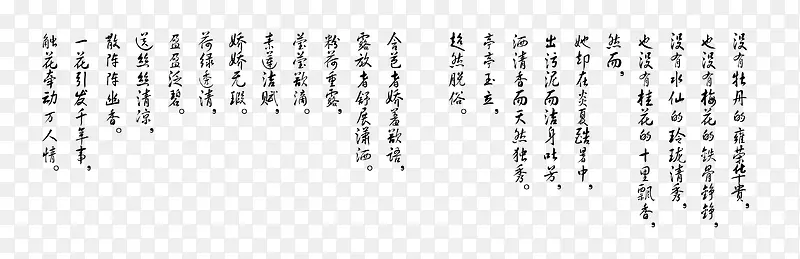 没有牡丹的雍荣华贵，
也没有梅花的铁骨铮铮，
没有水仙的玲珑清秀，
也没有桂花的十里飘香，
然而，
她却在炎夏酷暑中，
出污泥而洁身吐芳，
洒清香而天然独秀。
亭亭玉立，
超然脱俗。
含苞者娇羞欲语，
露放者舒展潇洒。
粉荷垂露，
莹莹欲滴。
素莲洁赋，
娇娇无瑕。
荷绿透清，
盈盈泛碧。
送丝丝清凉，
散阵阵幽香。
一花引发千年事，
触花牵动万人情。